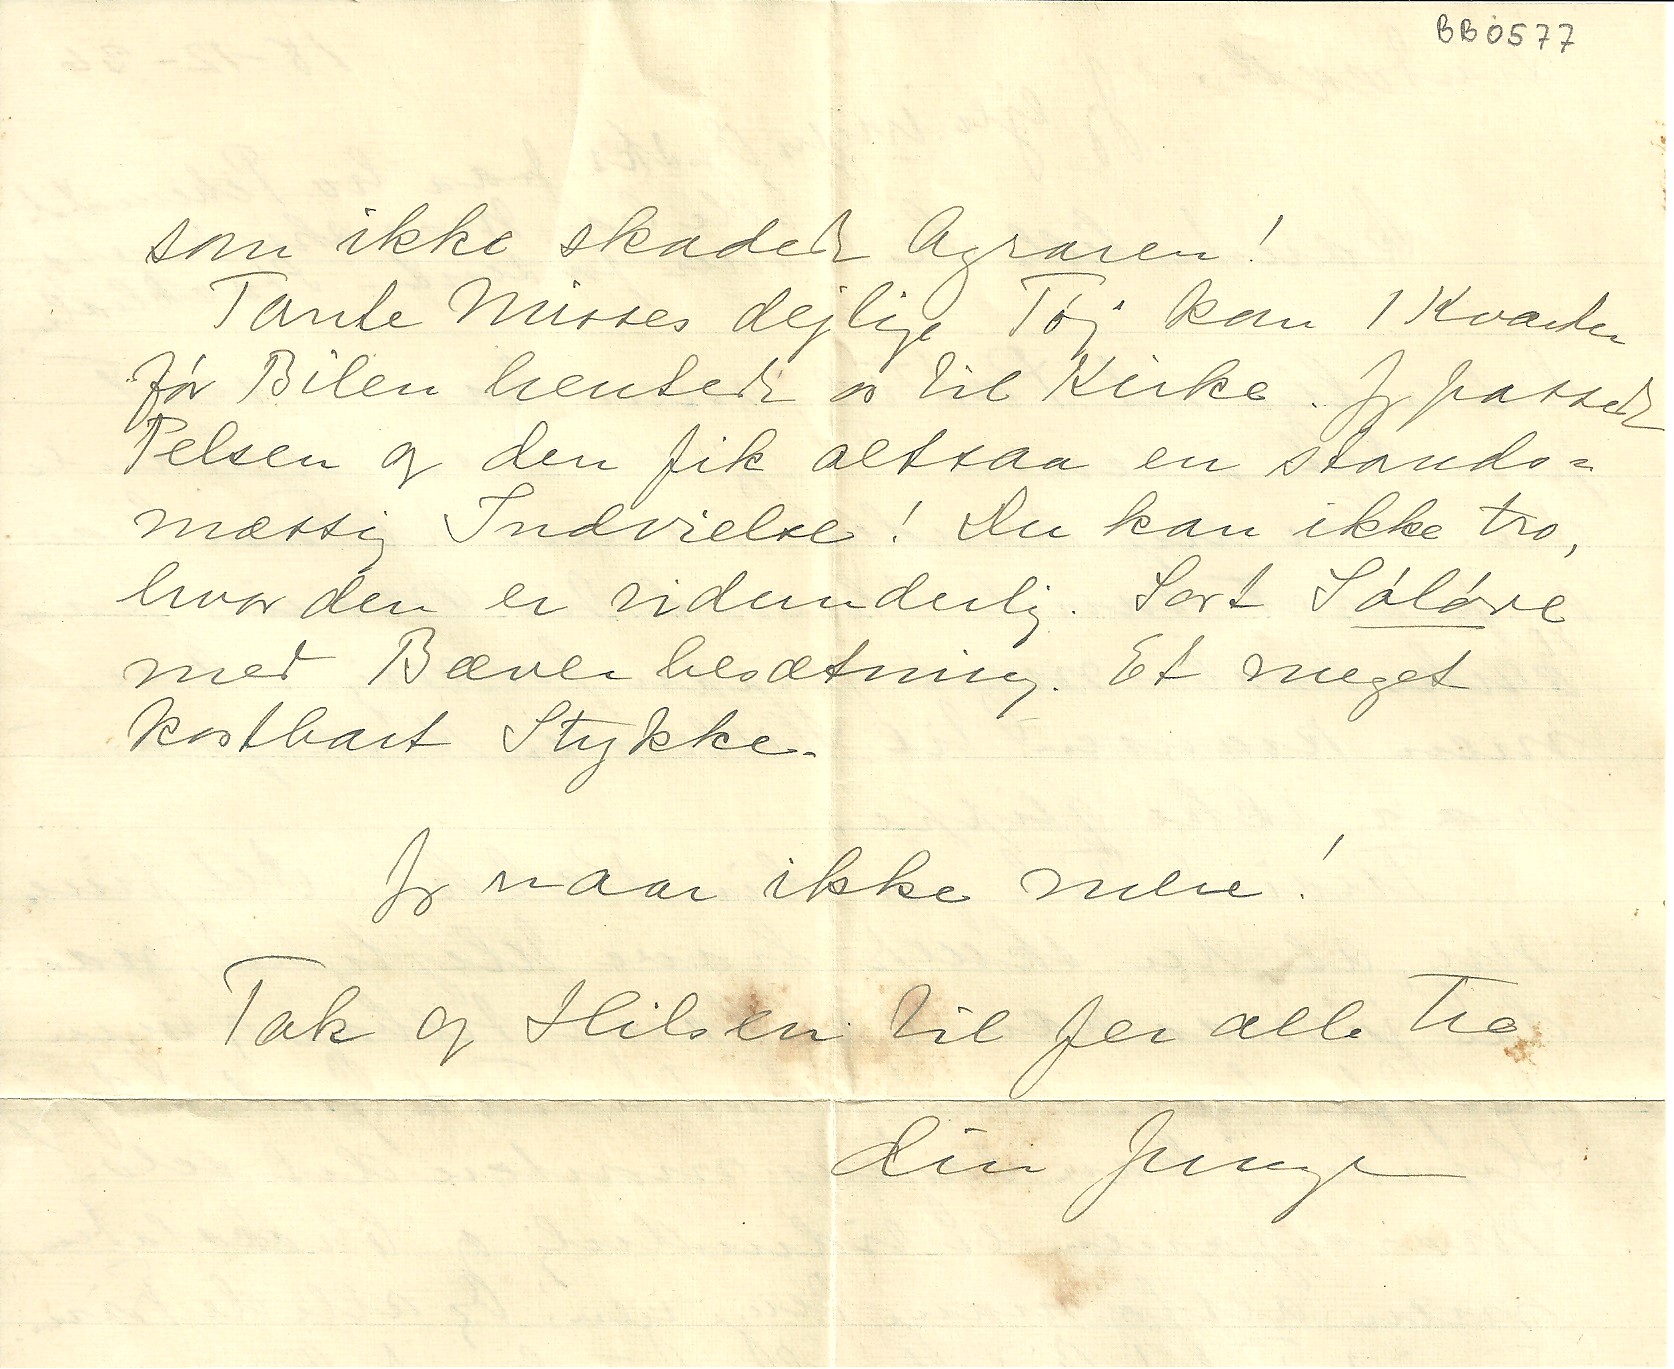 BB0577
som ikke skader Agraren!
Tante Misses dejlige Tøj kom 1 Kvarter
før Bilen hentede os til Kirke. Jg passede
Pelsen og den fik altsaa en stands=
mæssig Indvielse! Du kan ikke tro,
hvor den er vidunderlig. Sort Søløve
med Bæverbesætning. Et meget
kostbart Stykke.
Jg naar ikke mere!
Tak og Hilsen til Jer alle Tre
din Junge